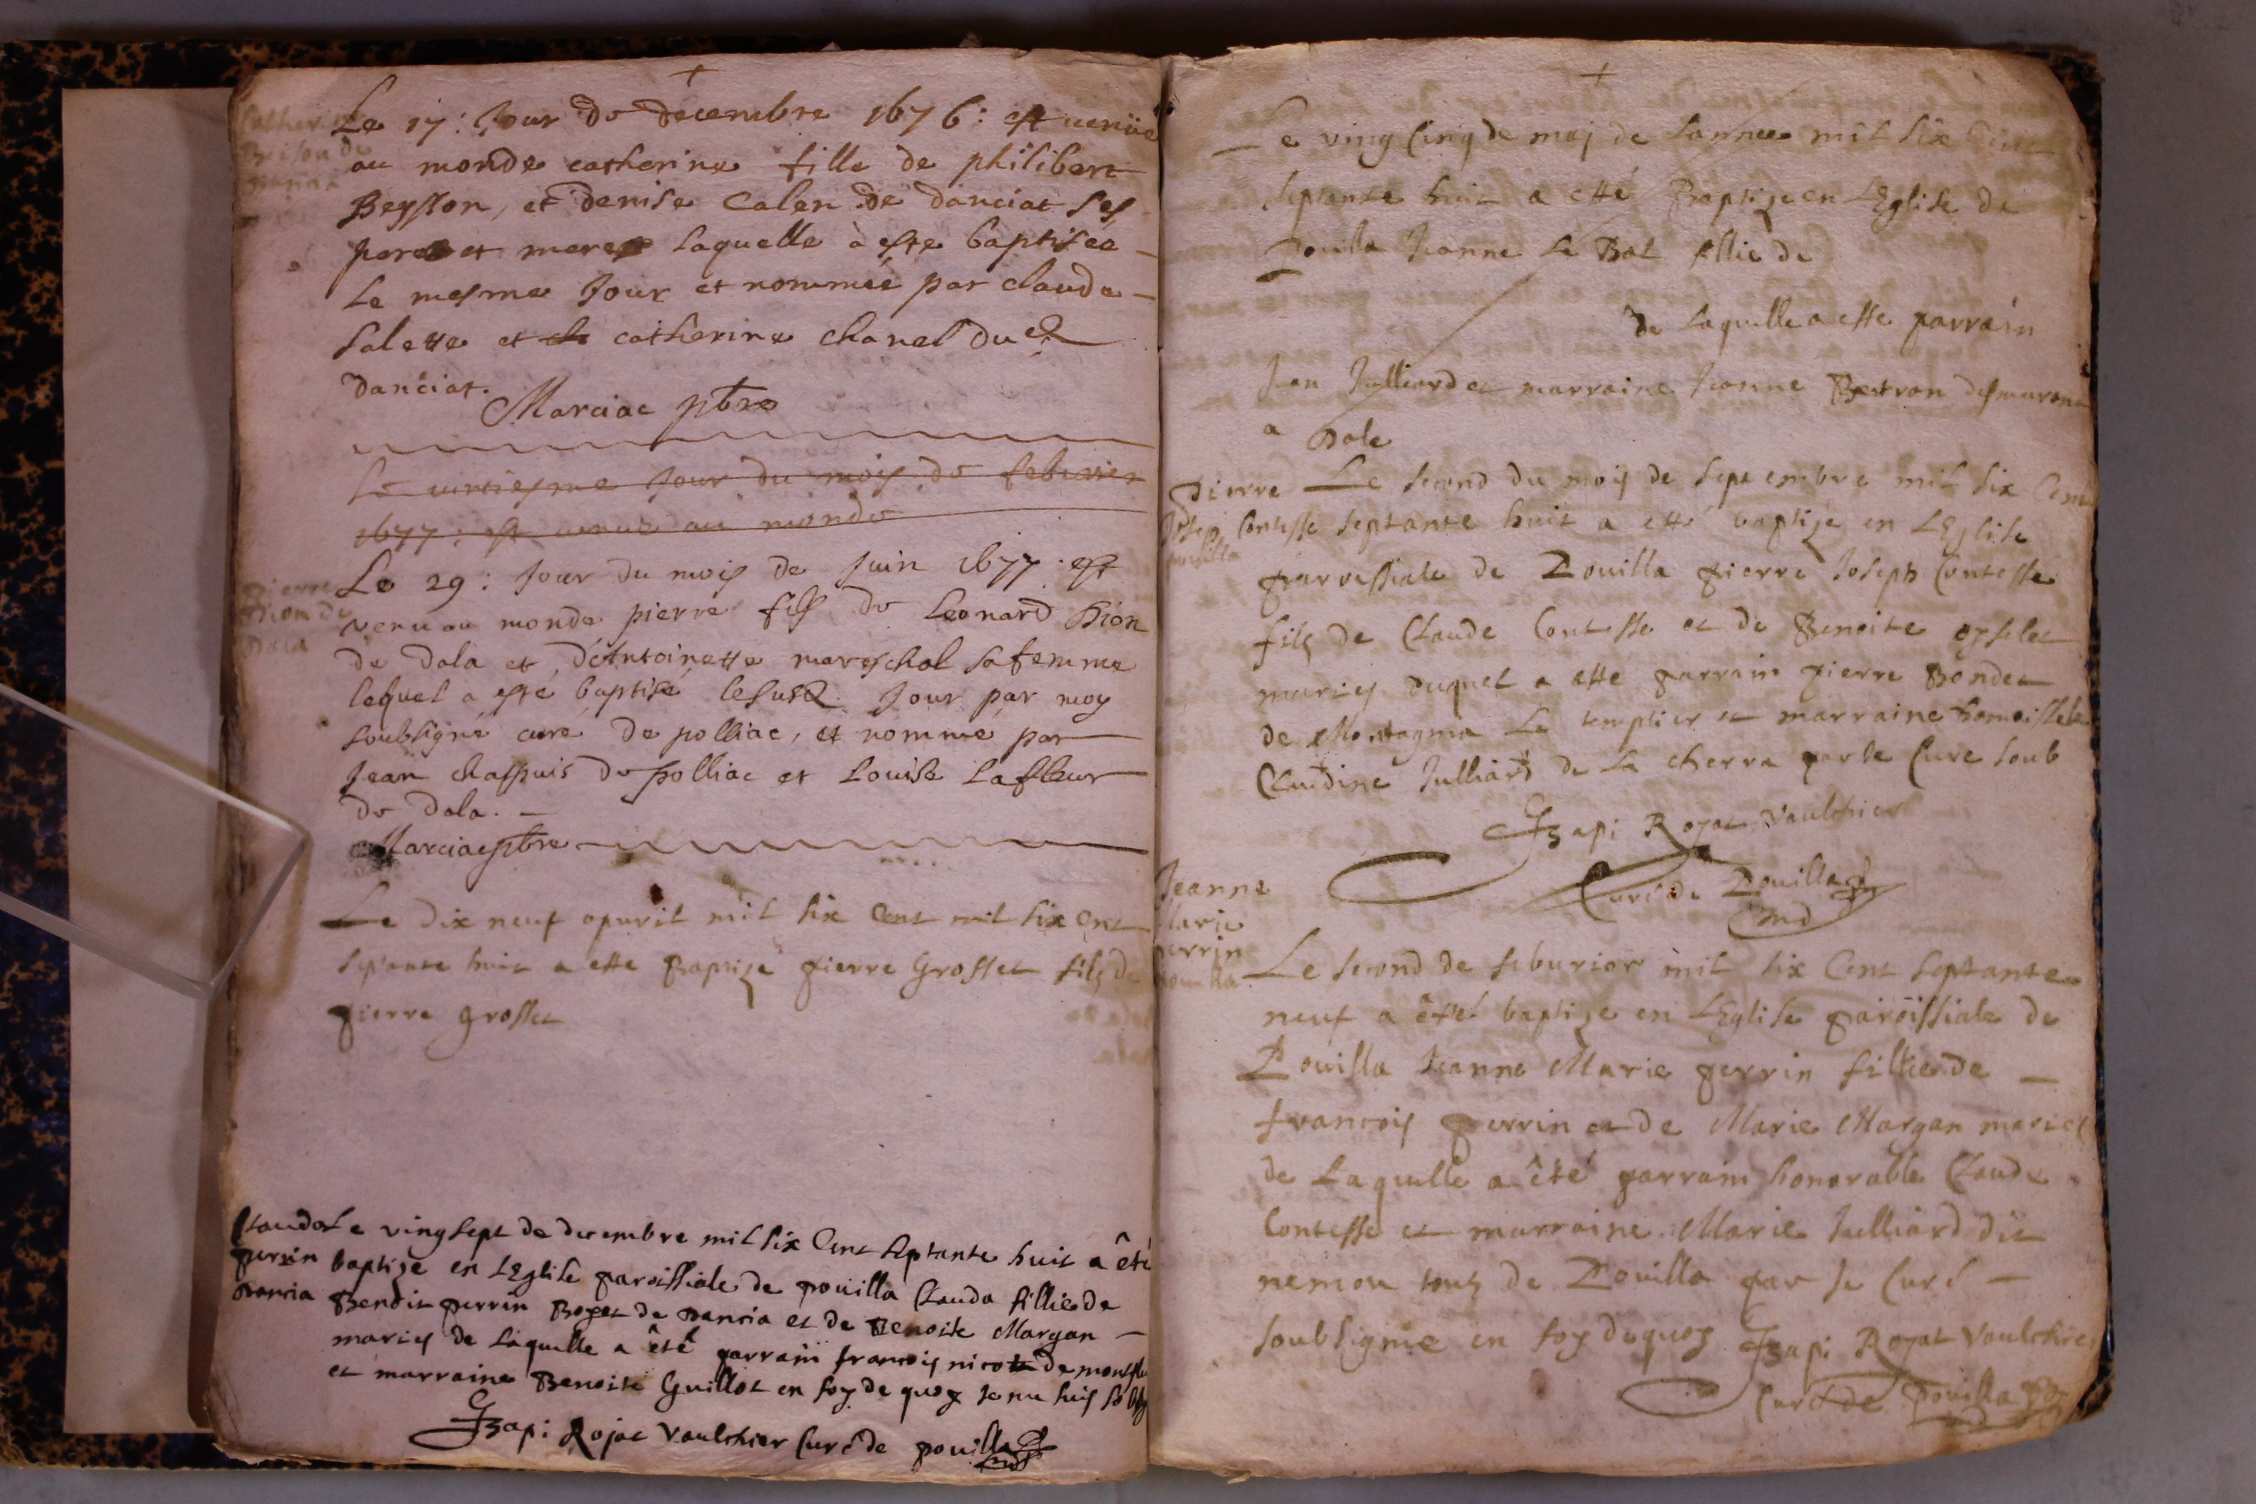 Le 17: Jour de decembre 1676: est venüe
au monde catherine fille de philibert
Beysson, et denise Calen de danciat ses
pere et mere laquelle à este baptisée
le mesme Jour et nommée par claude
Salette et catherine chanel du
danciat.
Marciac pbre
Le vintiesme Jour du mois de febvrier
1677: est venue au monde
Pierre
hion de
Dola
Le 29: Jour du mois de Juin 1677: est
venu au monde pierre fils de Leonard hion
de dola et d'Antoinette mareschal sa femme
lequel a esté baptisé le susd. Jour par moy
soubsigné curé de polliac, et nommé par
Jean chapuis de polliac et Louise Lafleur
de dola.
Marciac pbre
Le dix neuf apuril mil six Cent mil six Cent
septante huit a ette Baptize pierre Grosset fils de
pierre grosset
Clauda
perrin
Dancia
Le ving sept de decembre mil six Cent septante huit a êté
baptize en LEglise paroissiale de pouilla Clauda fillie de
Benoit perrin Boget de Dancia et de Benoite Margan
mariés de laquelle a êté parrain francois nicot de
et marraine Benoite Guillot en foy de quoy Je me suis
api Rojat Vaulchier Curé de pouilla
Le ving Cinq de maj de lannee mil six Cent
septante huit a etté Baptize en LEglise de
Pouila Jeanne Le Bal fillie de
de laquelle a esse parrain
Jean Julliard et marraine Jeanne Bertron
a Dole
Pierre
Josep Contesse
pouilla
Le second du mois de septembre mil six Cent
septante huit a etté baptize en LEglise
parvessiale de Pouilla pierre Joseph Contesse
fils de Claude Contesse et de Benoite
mariés duquel a ette parrain pierre Bondet
de Montagma Le templier et marraine
Claudine Julliard de la cherra par le Cure soub
api Rojat Vaulchier
Curé de Pouilla
Jeanne
Marie
perrin
pouilla
Le second de feburier mil six Cent septante
neuf a êtté baptize en LEglise paroissiale de
Pouilla Jeanne Marie perrin fillie de
francois perrin et de Marie Margan mariés
de Laquelle a êté parrain honorable Claude
Contesse et marraine Marie Julliard dit
nemou tous de Pouilla par Je Curé
soubsigné en foy dequoy api Rojat Vaulchier
Curé de Pouilla